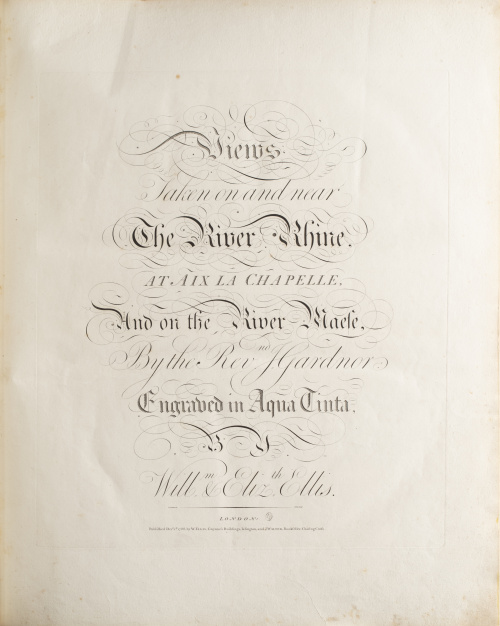 Views
Taken on and near
The River Rhine,
AT AIX LA CHAPELLE,
And on the River Maese,
By the Revnd J Gardnor
Engraved in Aqua Tinta,
BY
Willm & Elizth Ellis.
LONDON